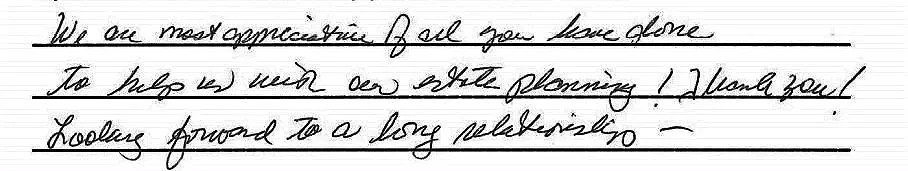 We are most appreciative of all you have done
to help us with our estate planning! Thank you!
Looking forward to a long relationship —